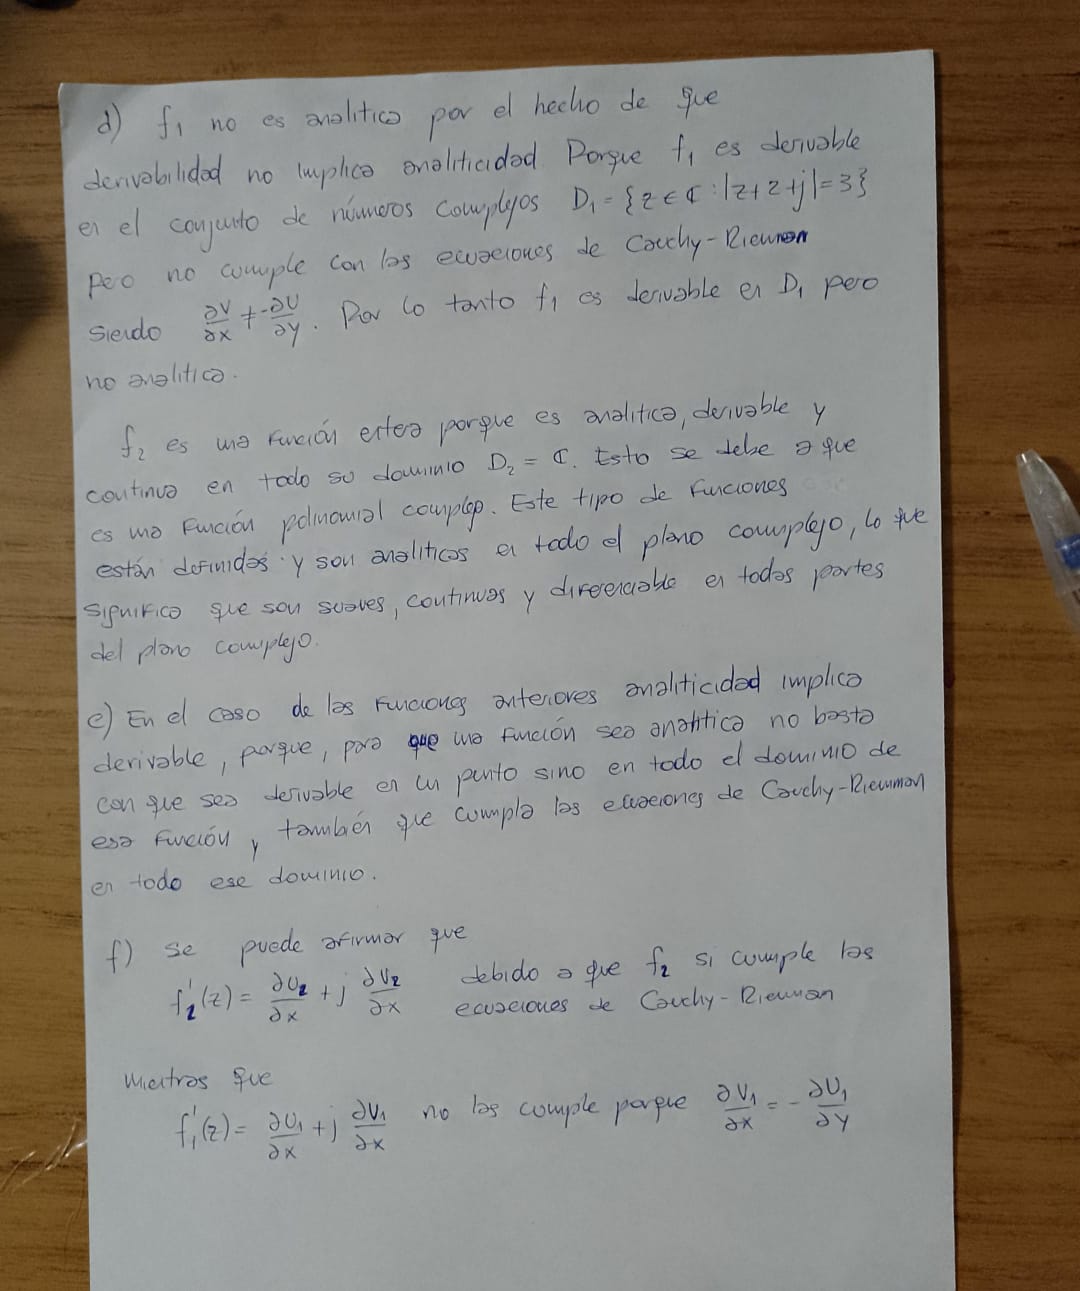 d) f₁ no es analitica por el hecho de que
derivabilidad no implica analiticidad Porque f₁ es derivable
en el conjunto de números Complejos D₁ = {z ∈ ℂ : |z+2+j|=3}
Pero no cumple con las ecuaciones de Cauchy-Rieman
siendo ∂V/∂x ≠ -∂U/∂y. Por lo tanto f₁ es derivable en D₁ pero
no analitica.
f₂ es una función entera porque es analitica, derivable y
continua en todo su dominio D₂ = ℂ. Esto se debe a que
es una Función polinomial compleja. Este tipo de Funciones
están definidas y son analiticas en todo el plano complejo, lo que
significa que son suaves, continuas y diferenciable en todas partes
del plano complejo.
e) En el caso de las Funciones anteriores analiticidad implica
derivable, porque, para que una función sea analitica no basta
con que sea derivable en un punto sino en todo el dominio de
esa Función y también que cumpla las ecuaciones de Cauchy-Rieman
en todo ese dominio.
f) se puede afirmar que
f₂'(z) = ∂U₂/∂x + j ∂V₂/∂x debido a que f₂ si cumple las
ecuaciones de Cauchy-Rieman
Mientras que
f₁'(z) = ∂U₁/∂x + j ∂V₁/∂x no las cumple porque ∂V₁/∂x = - ∂U₁/∂y